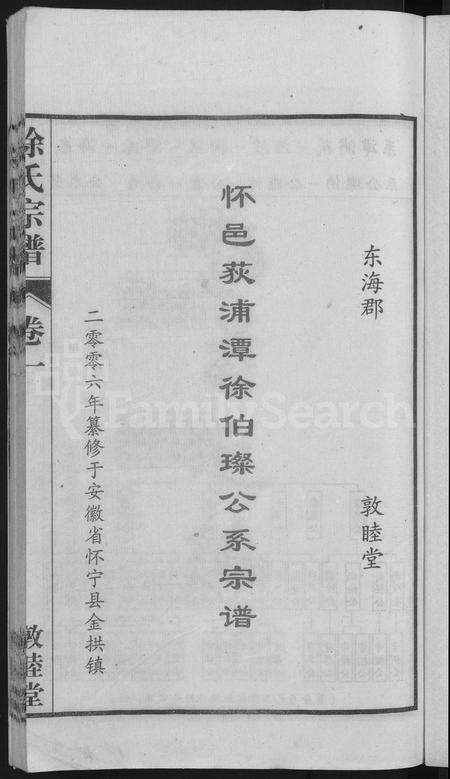 东海郡
敦睦堂
怀邑荻浦潭徐伯璨公系宗谱
二零零六年纂修于安徽省怀宁县金拱镇
徐氏宗谱
卷一
敦睦堂
FamilySearch